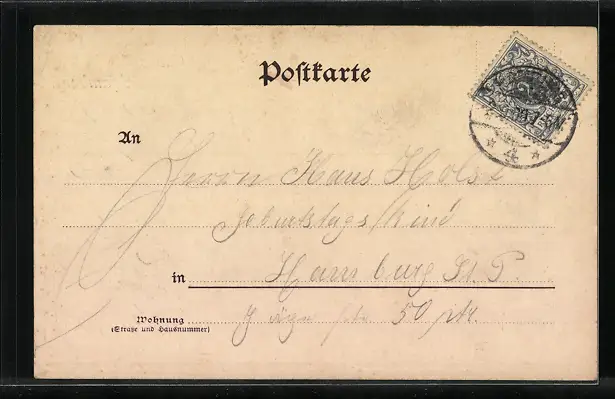 Postkarte
An
Herrn Hans Holst
Geburtstagskind
in Hamburg St. P.
Wohnung
(Straße und Hausnummer)
50 ptr.
* 4 *